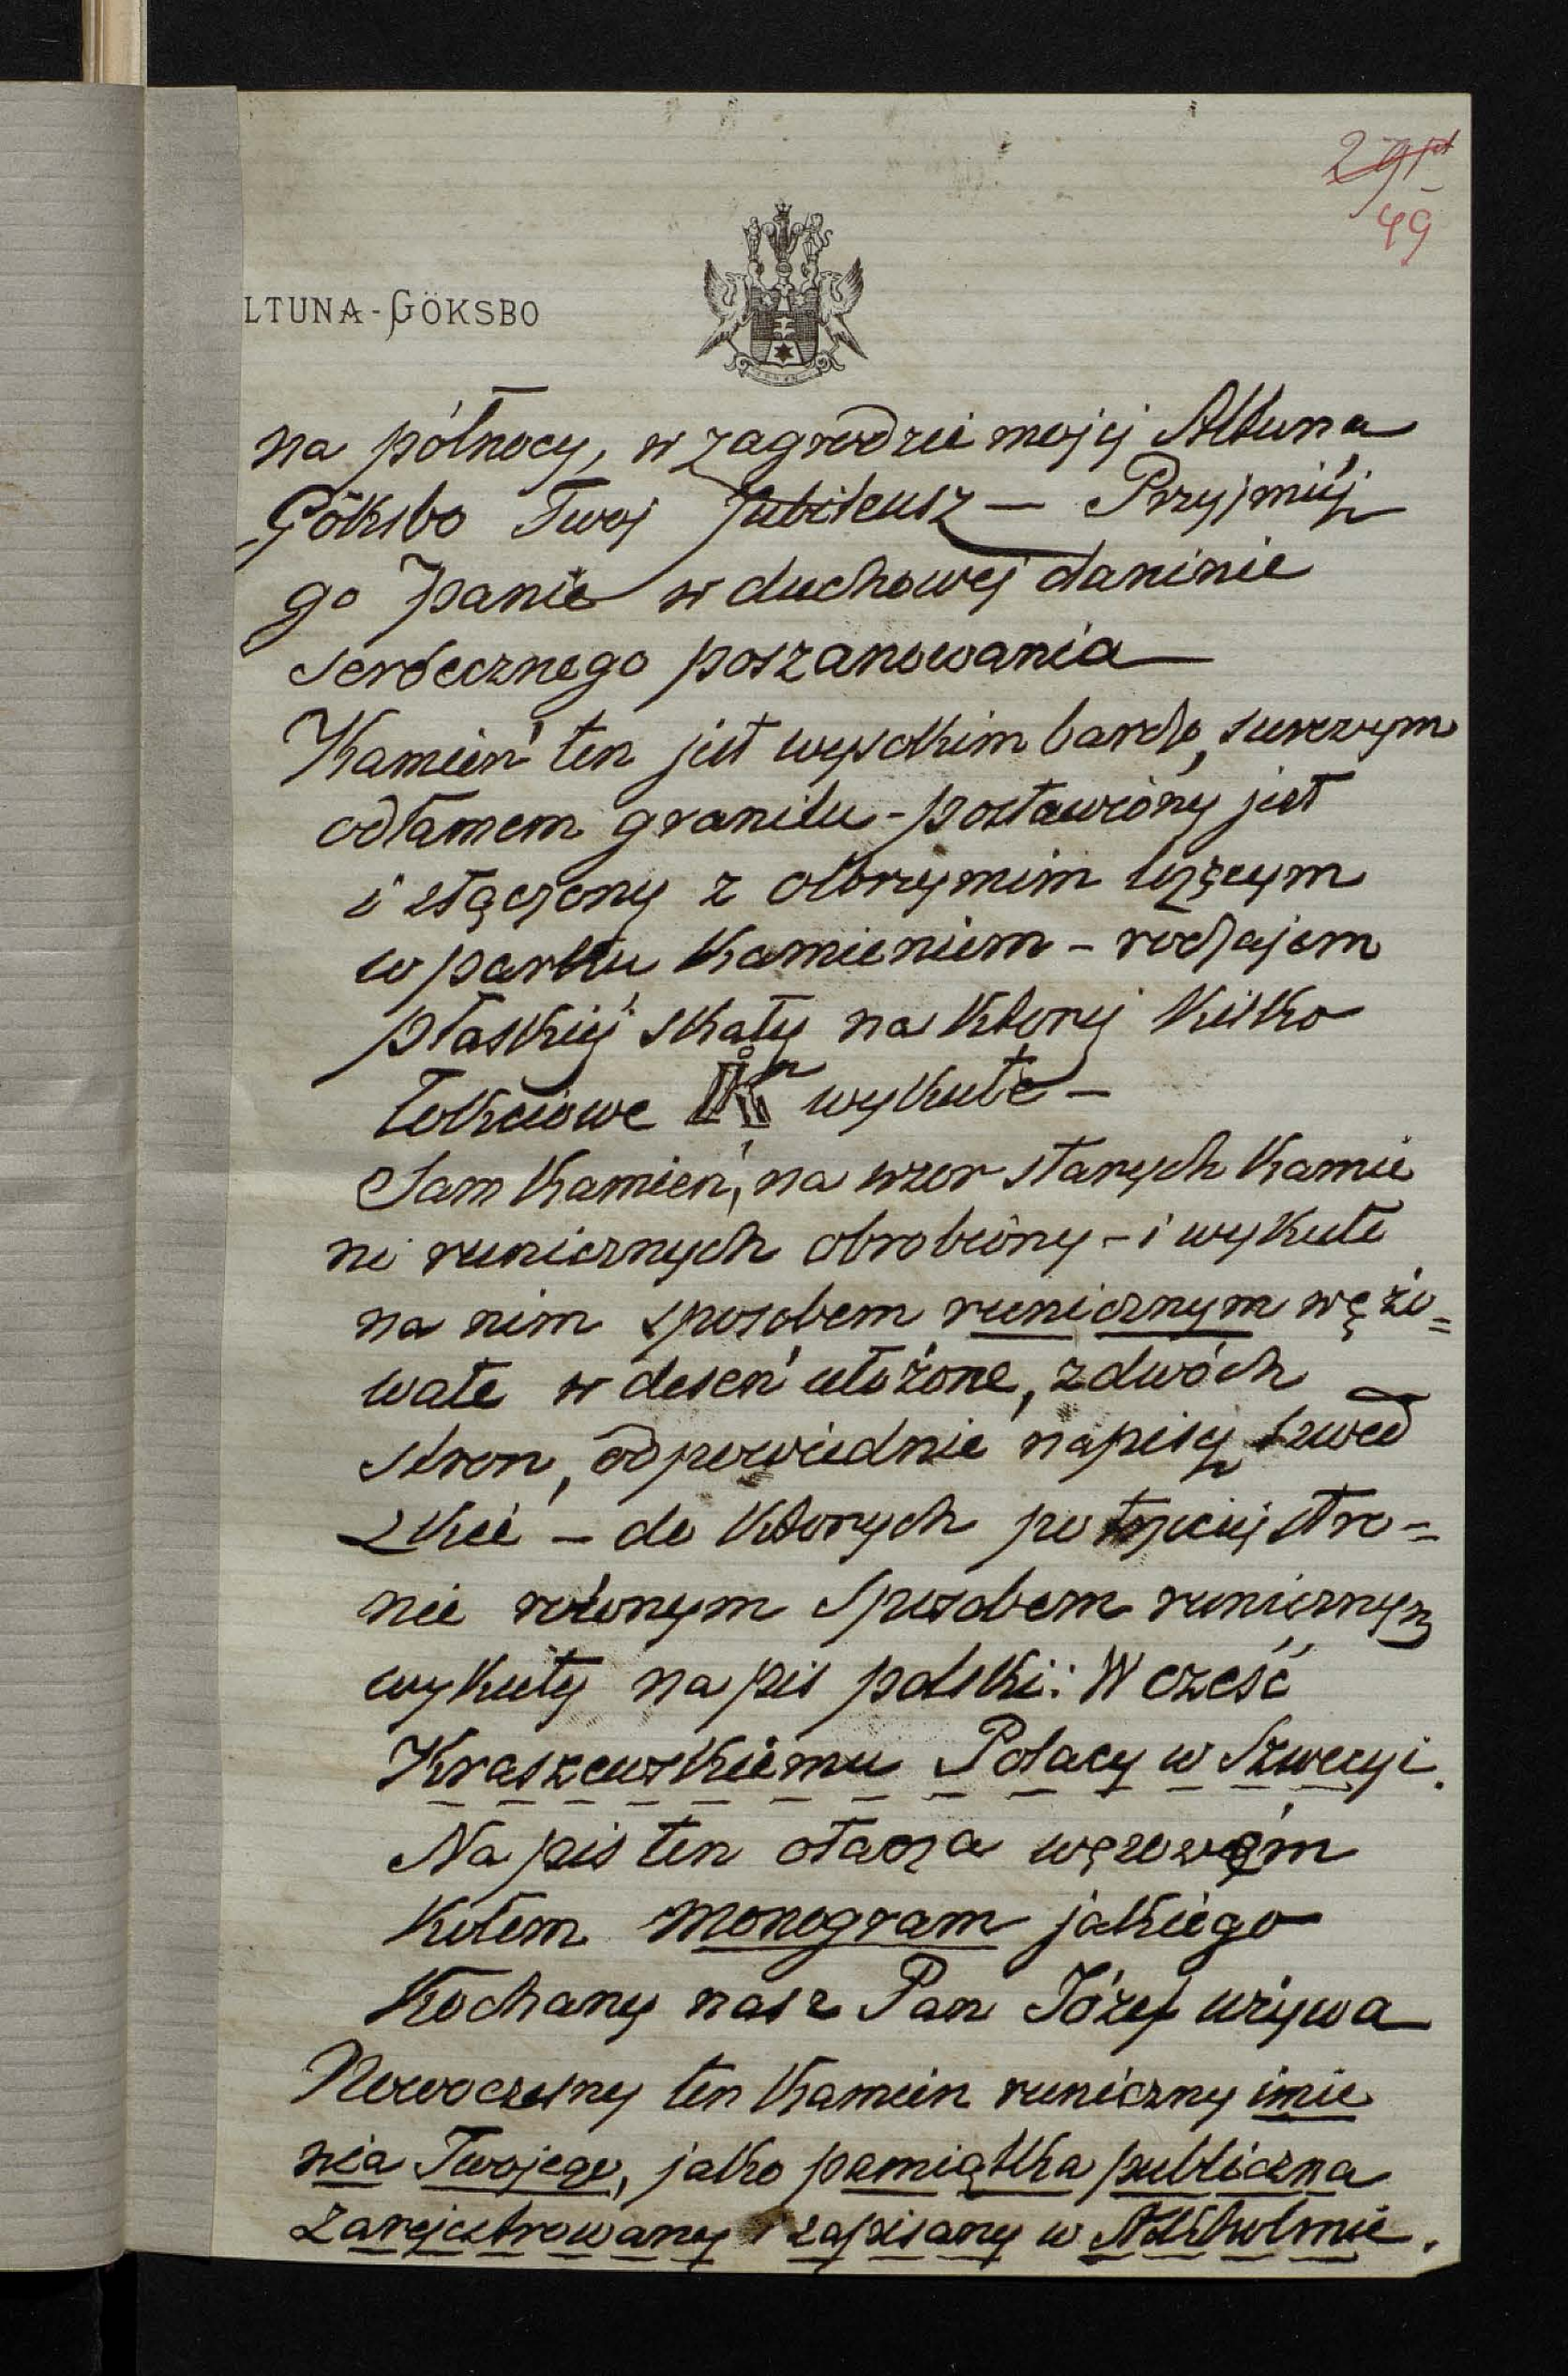 49
LTUNA-GÖKSBO
na północy, w zagrodzie mojej Altuna
Göksbo Twoj Jubileusz — Przyjmiéj
go Panie w duchowej daninie
serdecznego poszanowania —
Kamień ten jest wysokim bardzo, surowym
odłamem granitu - postawiony jest
i złączony z olbrzymim leżącym
w parku kamieniem - rodzajem
płaskiéj skały na ktorej kilko
łokciowe K wykute —
Sam kamień, na wzor starych kamie
ni runicznych obrobiony - i wykute
na nim sposobem runicznym wężo=
wate w deseń ułożone, z dwóch
stron, odpowiednie napisy szwed
zkie — do ktorych po trzeciej stro=
nie rownym sposobem runicznym
wykuty napis polski: W cześć
Kraszewskiemu Polacy w Szwecyi.
Napis ten otacza wężowém
kołem monogram jakiego
kochany nasz Pan Józef używa
Nowoczesny ten kamien runiczny imie
nia Twojego, jako pamiątka publiczna
zarejestrowany i zapisany w Sztokholmie.